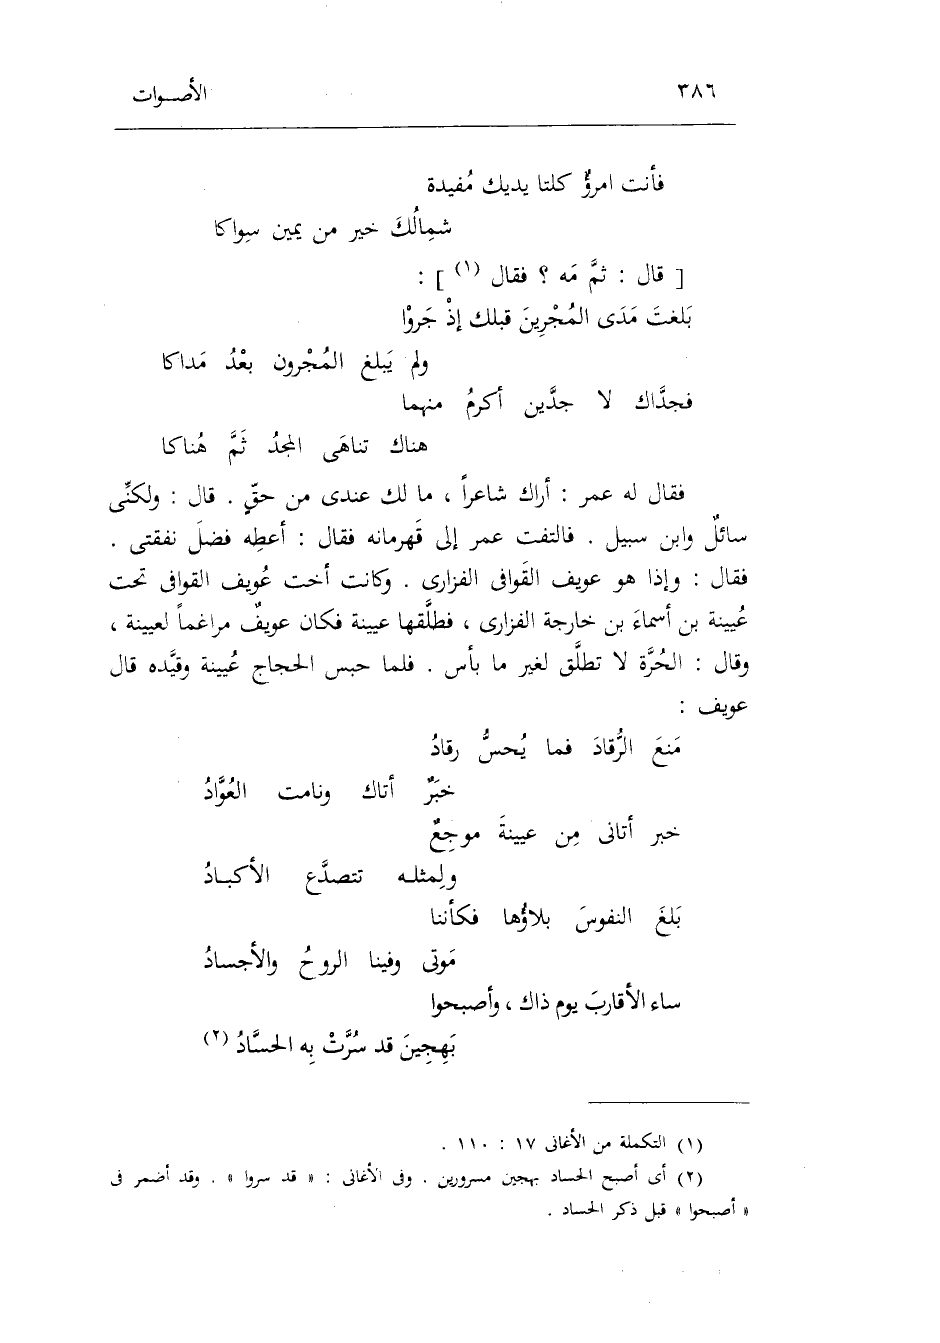 ٣٨٦ الأصوات
فأنت امرؤٌ كلتا يديك مُفيدة
شمِالُكَ خير من يمين سِواكا
[ قال : ثمَّ مَه ؟ فقال (١) ] :
بَلغتَ مَدَى المُجْرِينَ قبلك إذْ جَروْا
ولم يَبلغ المُجْرون بعْدُ مَداكا
فجدَّاك لا جدَّين أكرمُ منهما
هناك تناهَى المجدُ ثَمَّ هُناكا
فقال له عمر : أراك شاعراً ، ما لك عندى من حقّ . قال : ولكنِّى
سائلٌ وابن سبيل . فالتفت عمر إلى قَهرمانه فقال : أعطِه فضلَ نفقتى .
فقال : وإذا هو عويف القَوافى الفزارى . وكانت أخت عُويف القوافى تحت
عُيينة بن أسماءَ بن خارجة الفزارى ، فطلَّقها عيينة فكان عويفٌ مراغماً لعيينة ،
وقال : الحُرَّة لا تطلَّق لغير ما بأس . فلما حبس الحجاج عُيينة وقيَّده قال
عويف :
مَنعَ الرُّقادَ فما يُحسُّ رقادُ
خبَرٌ أتاك ونامت العُوَّادُ
خبر أتانى مِن عيينةَ موجِعٌ
ولِمثله تتصدَّع الأكبادُ
بَلغَ النفوسَ بلاؤُها فكأننا
مَوتى وفينا الروحُ والأجسادُ
ساء الأقاربَ يوم ذاك ، وأصبحوا
بَهِجِينَ قد سُرَّتْ بِه الحسَّادُ (٢)
(١) التكملة من الأغانى ١٧ : ١١٠ .
(٢) أى أصبح الحساد بهجين مسرورين . وفى الأغانى : « قد سروا » . وقد أضمر فى
« أصبحوا » قبل ذكر الحساد .